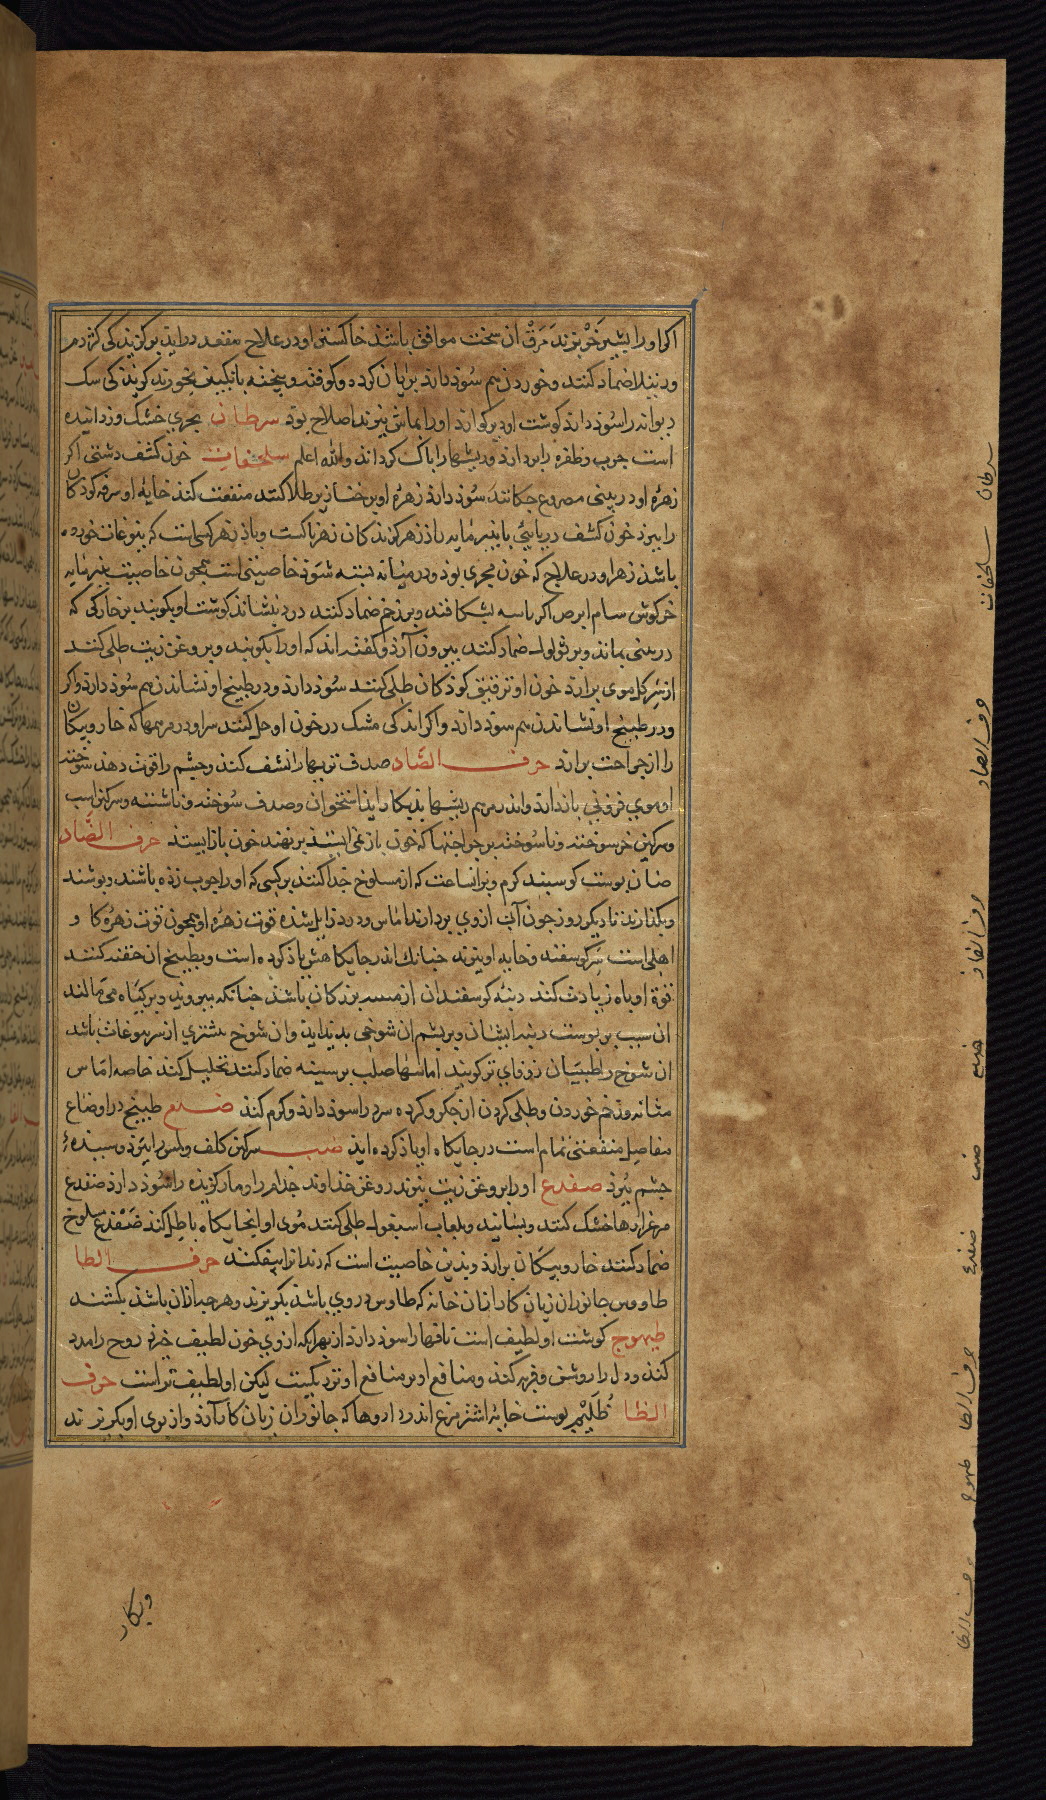 اکر اورا بشیر خر بزند مرق ان سخت موافق باشذ خاکستر او در علاج مقعد دراید بر کزیدکی کژدم
و رتیلا ضماد کنند و خوردن هم سوذ دارذ بریان کرده و کوفته و پخته بانکبین بخورند کزیذکی سک
دیوانه را سوذ دارذ کوشت او دیر کوارذ اورا بماش پزند اصلاح بوذ سرطان بحری خشک و زداینده
است جرب و ظفره را ببرد و ریشها را پاک کرداند والله اعلم سلحفات خون کشف دشتی اکر
زهره او در بینی مصروع چکانند سوذ دارذ زهره او بر خنازیر طلا کنند منفعت کند خایه او سرفه کوذکان
را ببرذ خون کشف دریایی با پنیرمایه باذزهر کزندکان زهرناکست و باذزهر کسی است که یتوعات خورده
باشد زهر او در علاج که خون مجری بوذ و در میانه بسته شوذ خاصیتی است همچون خاصیت پنیرمایه
خرکوش سام ابرص اکر باسه بشکافند و بر زخم ضماد کنند درد بنشاند کوشت او بکوبند بر خارکی که
در بماند و بر ثولول ضماد کنند بیرون آرذ و کفته اند که اورا بکوبند و بروغن زیت طلی کنند
از سر کل موی برارذ خون او بر فتق کوذکان طلی کنند سوذ دارذ و در طبیخ او نشاندن هم سوذ دارذ واکر
و در طبیخ او نشاندن هم سوذ دارذ و اکر اندکی مشک در خون او حل کنند سر او در مرهمها که خار و پیکان
را از جراحت برارذ حرف الصاد صدف تریها را نشف کنذ و چشم را قوت دهذ سوخته
او موی فزونی باز دارذ و اندر مرهم ریشها بکار ایذ استخوان و صدف سوخته و ناشسته و سرکین اسب
و سرکین خر سوخته و ناسوخته بر جراحتها که خون باز نمی ایستد بر نهند خون باز ایستذ حرف الضاد
ضان پوست کوسپند کرم و تر انساعت که از مسلوخ جدا کنند بر کسی که اورا چوب زده باشند و پوشند
و بکذارند تا دیکر روز چون آیت ازوی بردارند اماس و درد زایل شده قوت زهره او همچون قوت زهره کاو
اهلی است سر کوسفند و خایه او پزند چنانک اندر جایکاهش یاذ کرده است و بطبیخ ان حقنه کنند
قوة او باه زیادت کند دنبه کوسفندان بزرکان باشذ چنانکه میروند و بر کیاه می مالند
ان سبب بر پوست دنبه ایشان و بر پشم ان شوخی بدید اید وان شوخ مشتری از سر یتوعات باشد
ان شوخ را طبیبان زوفای تر کویند اماسها صلب بر سینه ضماد کنند تحلیل کند خاصه اماس
مثانه و رحم خوردن و طلی کردن از جکر و کرده سرد را سوذ دارذ و کرم کنذ ضبع طبیخ در اوضاع
مفاصل منفعتی تمام است در جایکاه او یاذ کرده اید ضب سرکین کلف و برش را ببرذ و سپیده
چشم ببرذ ضفدع اورا بروغن زیت پزند روغن خذاوند جذام را و مارکزیده را سوذ دارذ ضفدع
مرغزارها خشک کنند و بسایند و بلعاب اسبغول طلی کنند موی او انجایکاه باطل کند ضفدع مسلوخ
ضماد کنند خار و پیکان برارذ و بذین خاصیت است که دندانرا بیفکند حرف الطا
طاووس جانوران زیان کار از ان خانه که طاوس در وی باشذ بکریزند و هر جا از ان باشذ بکشند
طیهوج کوشت او لطیف است ناقها را سوذ دارذ از بهر انکه ازوی خون لطیف خیزد روح را مدد
کند و دل را روشن و قوی کند و منافع او بر منافع او نزدیکست لیکن او لطیف تر است حرف
الظا ظلیم پوست خایه اشترمرغ اندر داروها که جانوران زیان کار آرذ و از بوی او بکریزند
سرطان
سلحفات
حرف الصاد
حرف الضاد
ضبع
ضب
ضفدع
حرف الطا
طیهوج
حرف الظا
و بکار